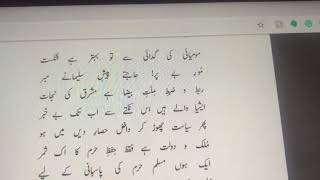 مومیائی کی گدائی سے تو بہتر ہے شکست
مورِ بے پر! حاجتے پیشِ سلیمانے مبر
ربط و ضبطِ ملتِ بیضا ہے مشرق کی نجات
ایشیا والے ہیں اس نکتے سے اب تک بے خبر
پھر سیاست چھوڑ کر داخل حصارِ دیں میں ہو
ملک و دولت ہے فقط حفظِ حرم کا اک ثمر
ایک ہوں مسلم حرم کی پاسبانی کے لیے